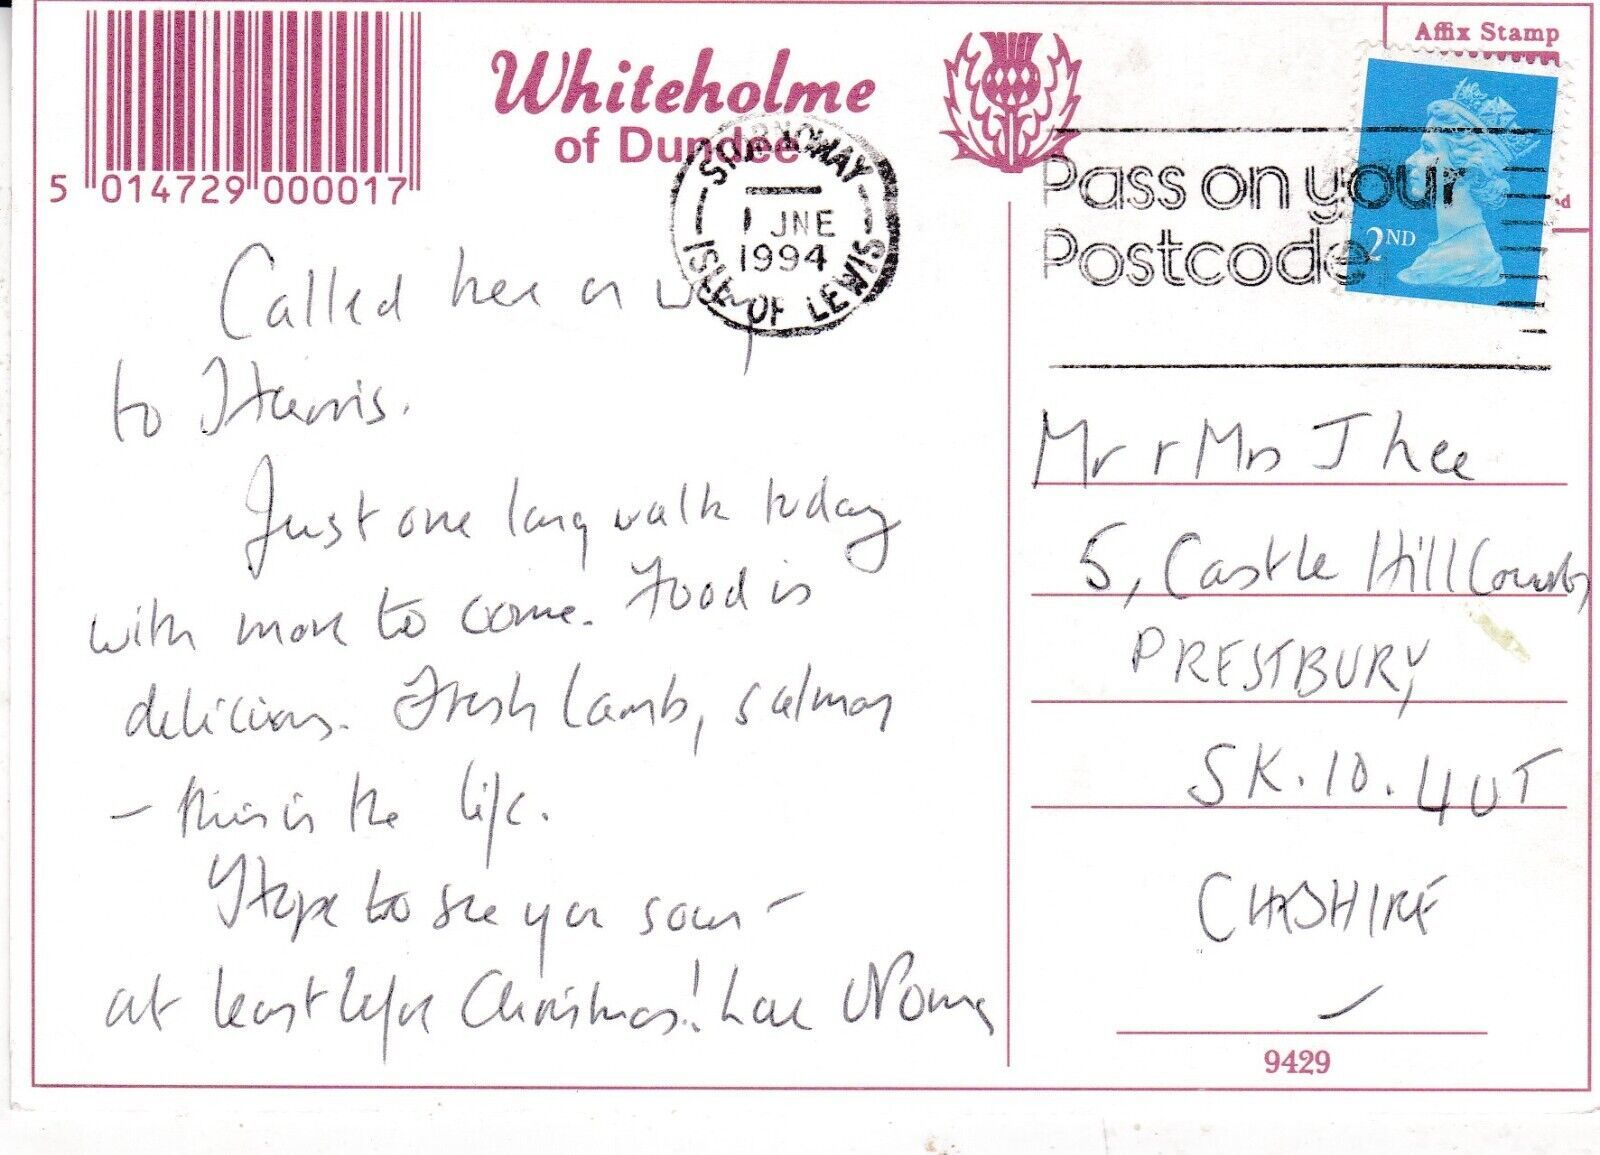 Affix Stamp
Whiteholme
of Dundee
5 014729 000017
STORNOWAY
1 JNE
1994
ISLE OF LEWIS
Pass on your
Postcode
2ND
Called here on way
to Harris.
Just one long walk today
with more to come. Food is
delicious. Fresh lamb, salmon
- this is the life.
Hope to see you soon -
at least before Christmas! Love
Mr + Mrs J Lee
5, Castle Hill
PRESTBURY
SK.10.4UT
CHESHIRE
9429